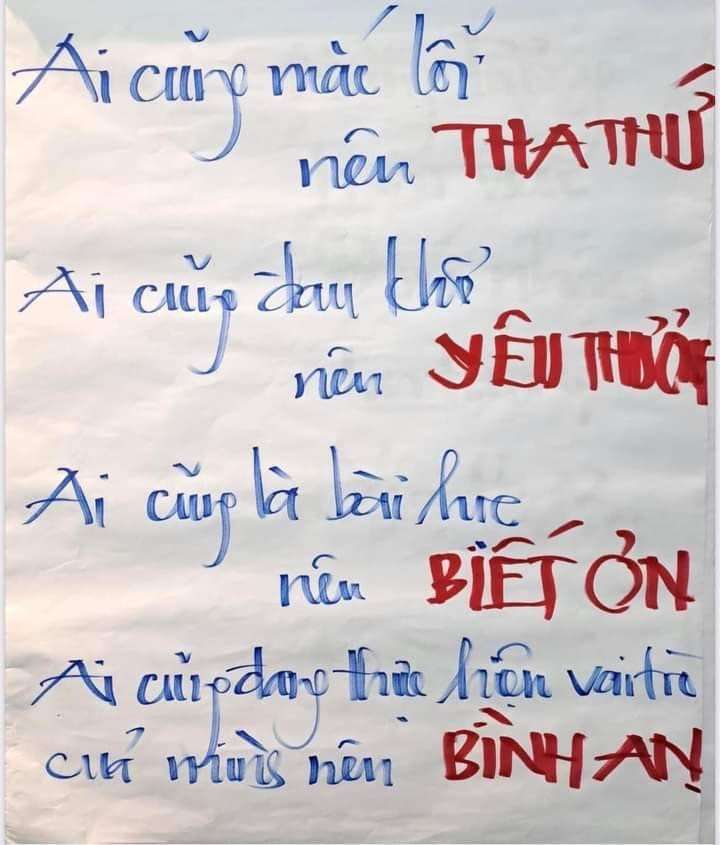 Ai cũng mắc lỗi
nên THA THỨ
Ai cũng đau khổ
nên YÊU THƯƠNG
Ai cũng là bài học
nên BIẾT ƠN
Ai cũng đang thực hiện vai trò
của mình nên BÌNH AN